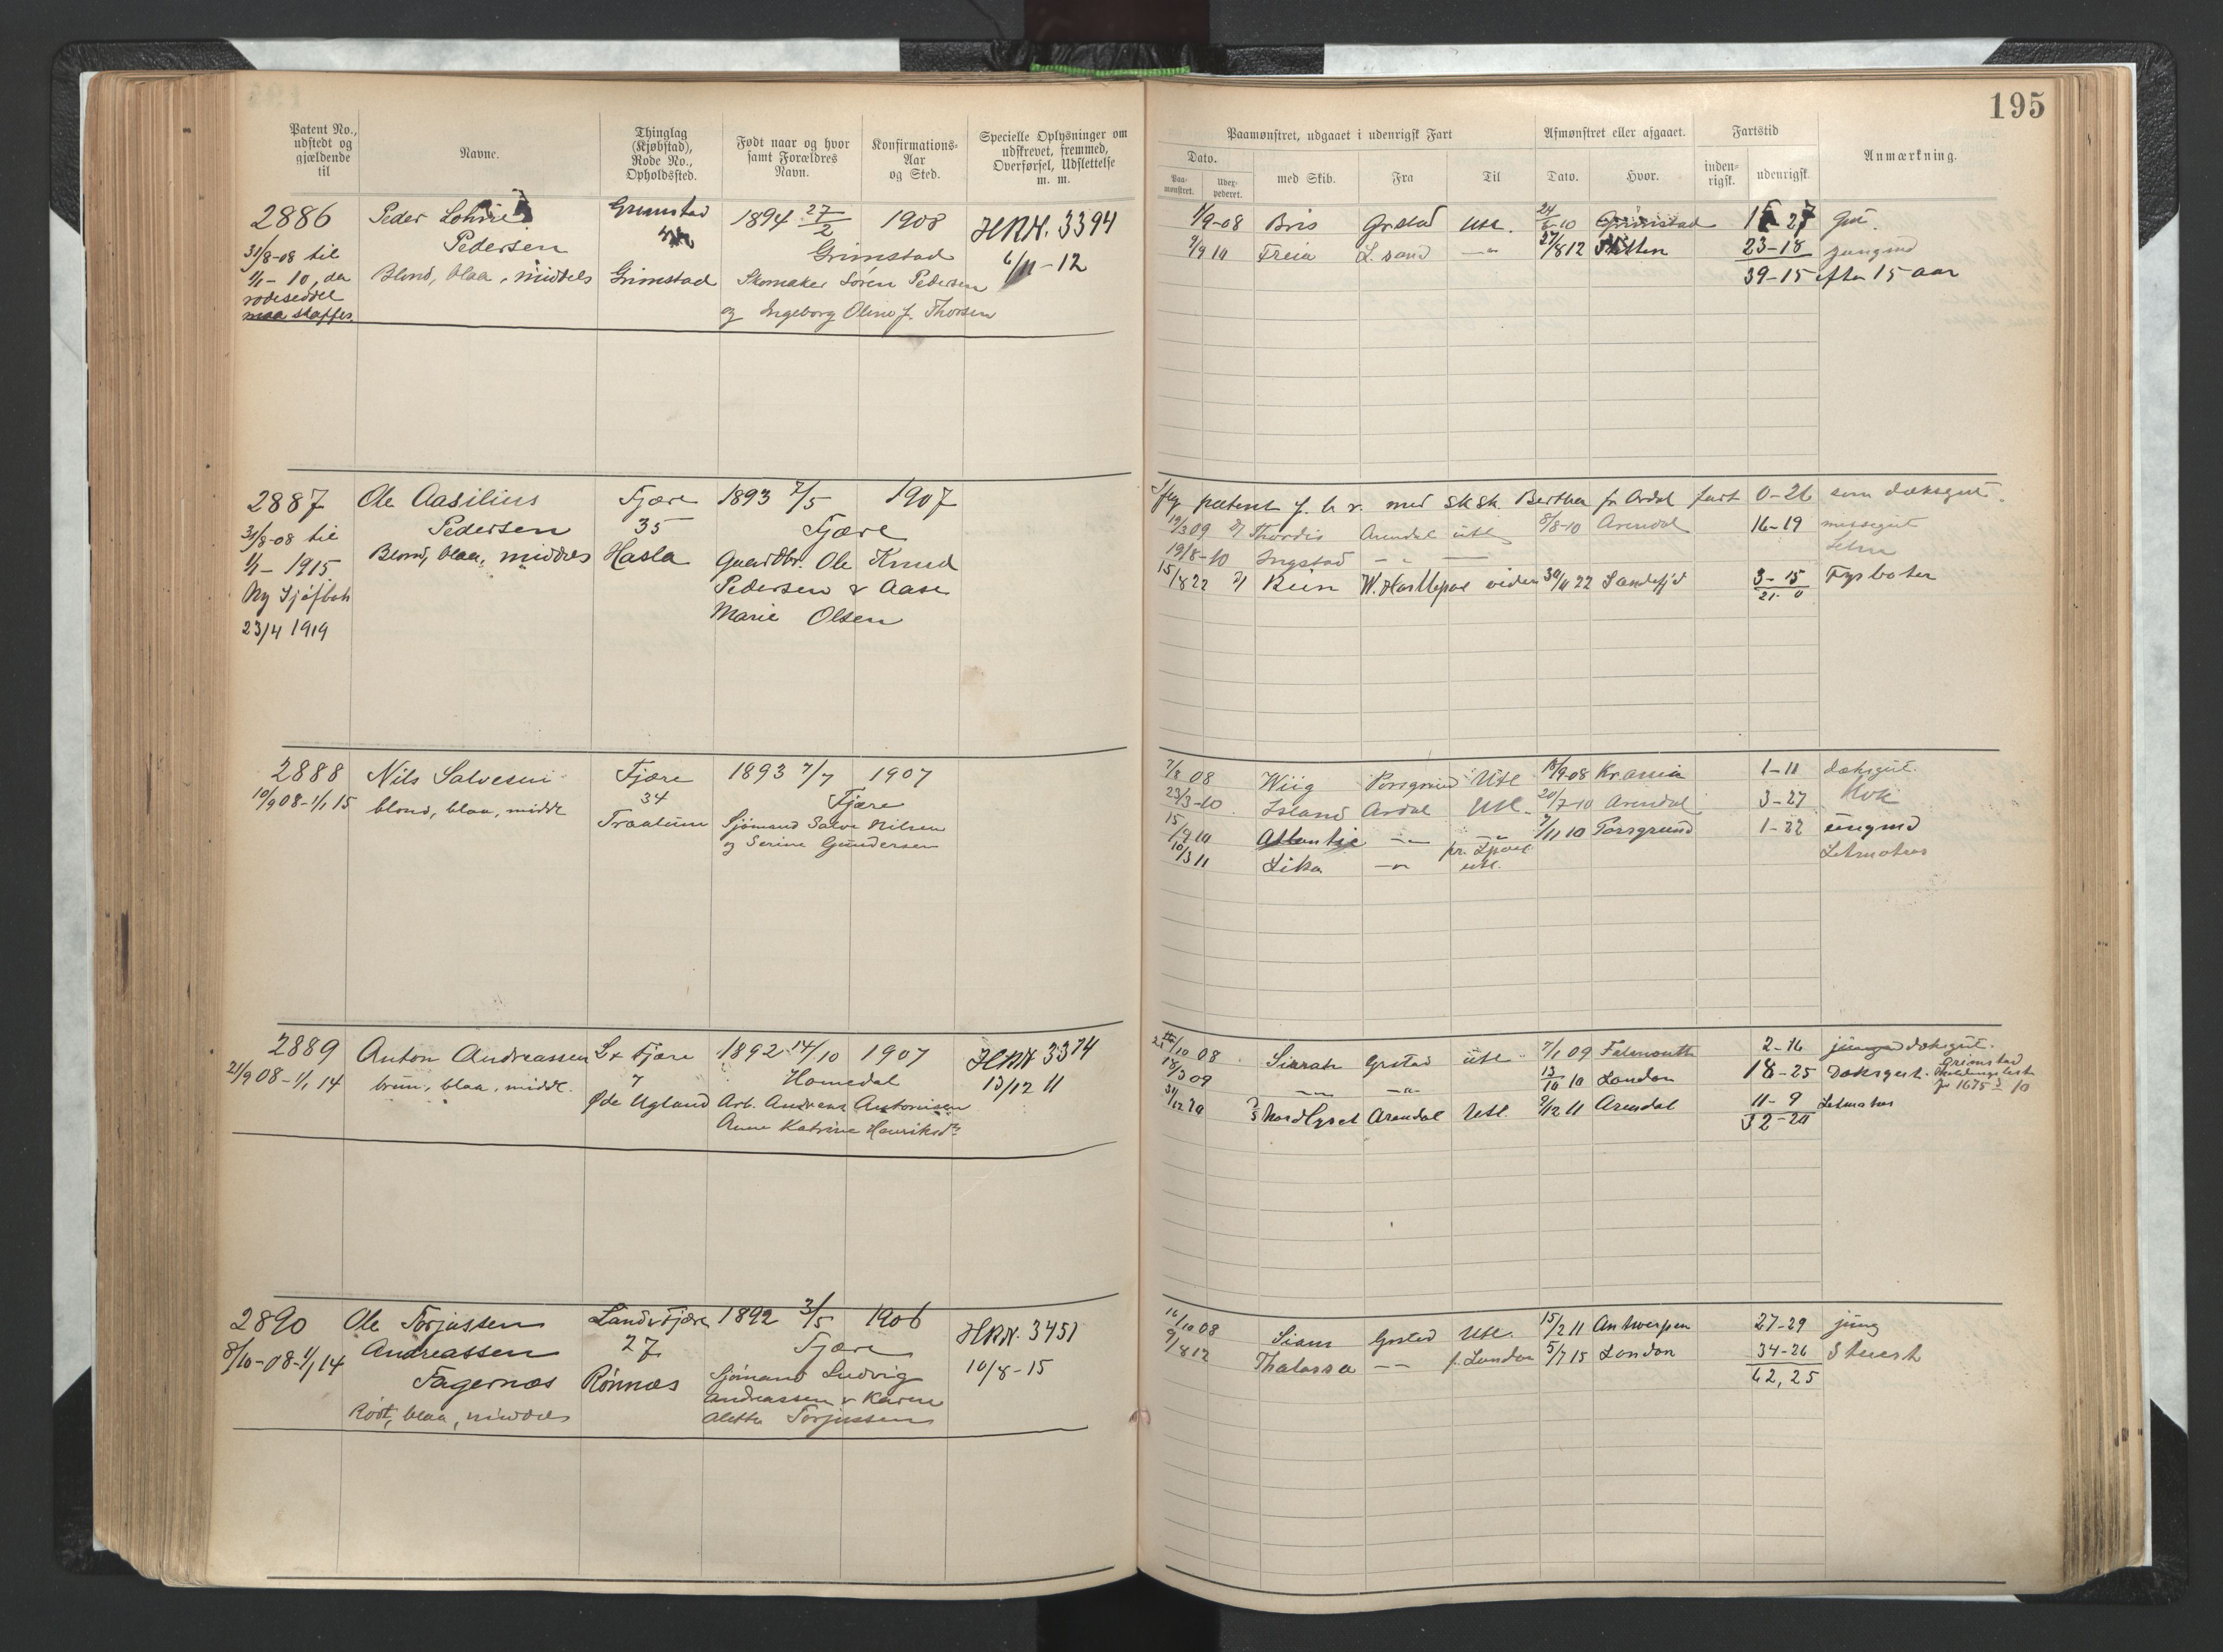 195
Patent No., udstedt og gjældende til
Navne.
Thinglag (Kjøbstad), Rode No., Opholdssted.
Født naar og hvor samt Forældres Navn.
Konfirmations-Aar og Sted.
Specielle Oplysninger om udskrevet, fremmed, Overførsel, Udslettelse m. m.
Paamønstret, udgaaet i udenrigsk Fart
Afmønstret eller afgaaet.
Fartstid
Anmærkning.
Dato.
Paa-mønstret.
Uder-pederet.
med Skib.
Fra
Til
Dato.
Hvor.
inden-rigsk.
udenrigsk.
2886 Peder Pedersen
31/8-08 til
1/1-10, da
rodeseddel
maa skaffes.
Blond, blaa, middels
Grimstad
Grimstad
1894 27/2 1908
Grimstad
Skomaker Søren Pedersen
og Ingeborg Oline f. Thorsen
HRN. 3394
6/11-12
1/9-08 Bris Grstad Utl. 24/6-10 Grimstad Gut.
9/9 10 Freia L.sand -"- 27/8 12 23-18 jungmd
39-15 efter 15 aar
2887 Ole Aasilius
Pedersen
31/8-08 til
1/1-1915
Ny Sjøfbok
23/4 1919
Blond, blaa, middels
Fjære
35
Hasla
1893 7/5 1907
Fjære
Gaardbr. Ole Knud
Pedersen & Aase
Marie Olsen
patent f. h. v. med sksk. Berthea fr Ardal fart 0-26 som dæksgut.
19/3 09 Thordis Arendal utl 8/8-10 Arendal 16-19 messegut
19/8-10 Ingstad - " -
15/8 22 Bein W. Hartlepol viden 30/11 22 Sandefjd 3-15 Fyrbøter
21-0
2888 Nils Salvesen
10/9 08-1/1 15 blond, blaa, middl
Fjære
34
Traalum
1893 7/7 1907
Fjære
Sjømand Salve Nilsen
og Serine Gundersen
7/8 08 Wiig Porsgrund Utl 18/9-08 Krania 1-11 dæksgut.
23/3-10 Island Ardal Utl. 20/7-10 Arendal 3-27 Kok
15/9 10 Atlantic -"- -"- 7/11 10 Porsgrund 1-22 ungmd
10/3 11 Lika -"- utl. Letmatros
2889 Anton Andreassen
21/9 08-1/1 14 brun, blaa, middl.
L+ Fjære
7
Øde Ugland
1892 14/10 1907
Homedal
Arb. Andreas Antonisen
Anne Katrine Henriksdtr
HRN 3374
13/12 11
08 Siarah Grstad utl. 7/1 09 Falmouth 2-16 dæksgut.
18/3 09 -"- -"- 13/10 10 London 18-25 Dæksgut. Grimstad
30/12 10 Nordlyset Arendal Utl. 2/12 11 Arendal 11-9 Letmatros
32-20
2890 Ole Torjussen
8/10-08-1/1 14 Andreassen
Fagernæs
Rødt, blaa, middels
Landv Fjære
27
Rønnæs
1892 3/5 1906
Fjære
Sjømand Ludvig
Andreassen & Karen
Alette Torjussen
HRN. 3451
10/8-15
16/10 08 Siam Grstad Utl. 15/2 11 Antwerpen 27-29 jung
9/8 12 Thalassa -"- f. London 5/7 15 London 34-26 Stuert
62,25